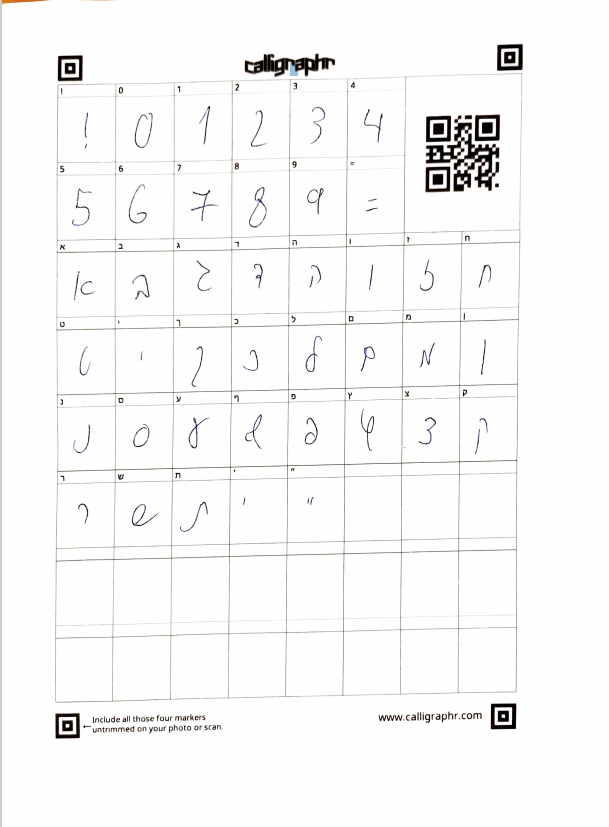 calligraphr
! 0 1 2 3 4
! 0 1 2 3 4
5 6 7 8 9 =
5 6 7 8 9 =
א ב ג ד ה ו ז ח
א ב ג ד ה ו ז ח
ט י ך כ ל ם מ ן
ט י ך כ ל ם מ ן
נ ס ע ף פ ץ צ ק
נ ס ע ף פ ץ צ ק
ר ש ת ' "
ר ש ת ' "
← Include all those four markers
untrimmed on your photo or scan.
www.calligraphr.com